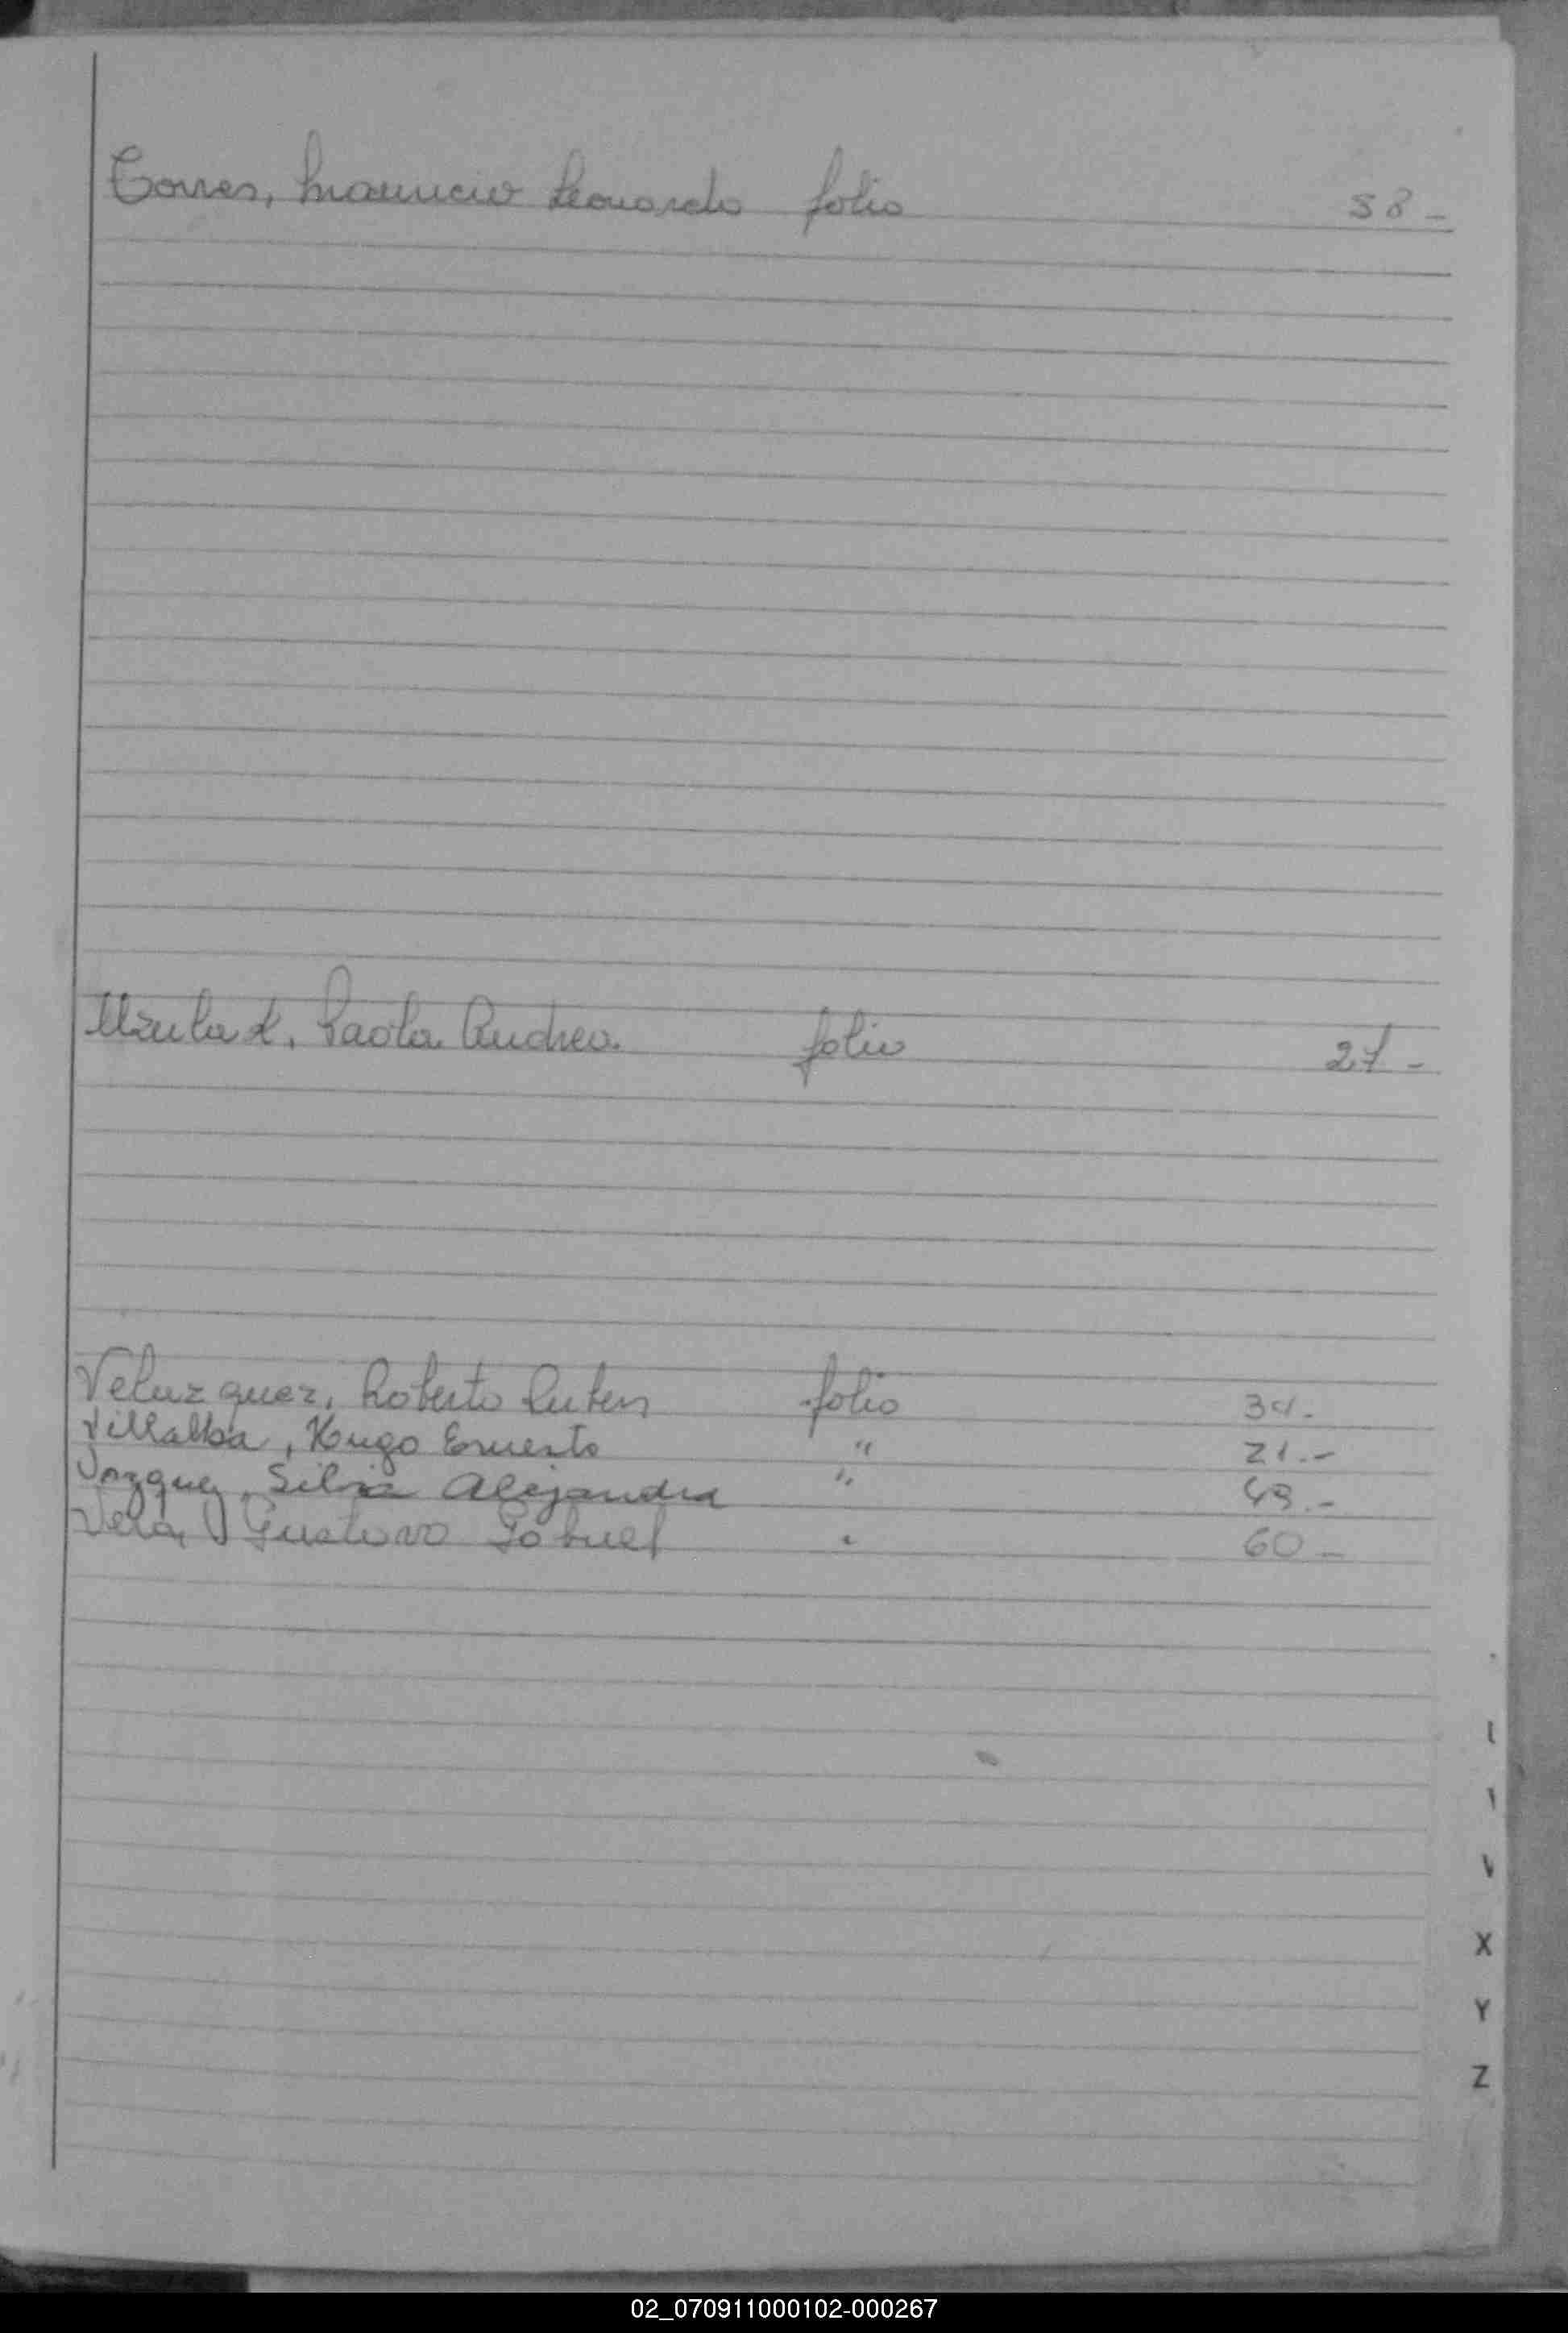 Torres, Mauricio Leonardo folio 58 -
Paola Andrea. folio 27 -
Velazquez, Roberto Ruben folio 34.
Villalba, Hugo Ernesto " 21.-
Vazquez, Silvia Alejandra " 49.-
Vera, Gustavo Gabriel " 60 -
X
Y
Z
02_070911000102-000267